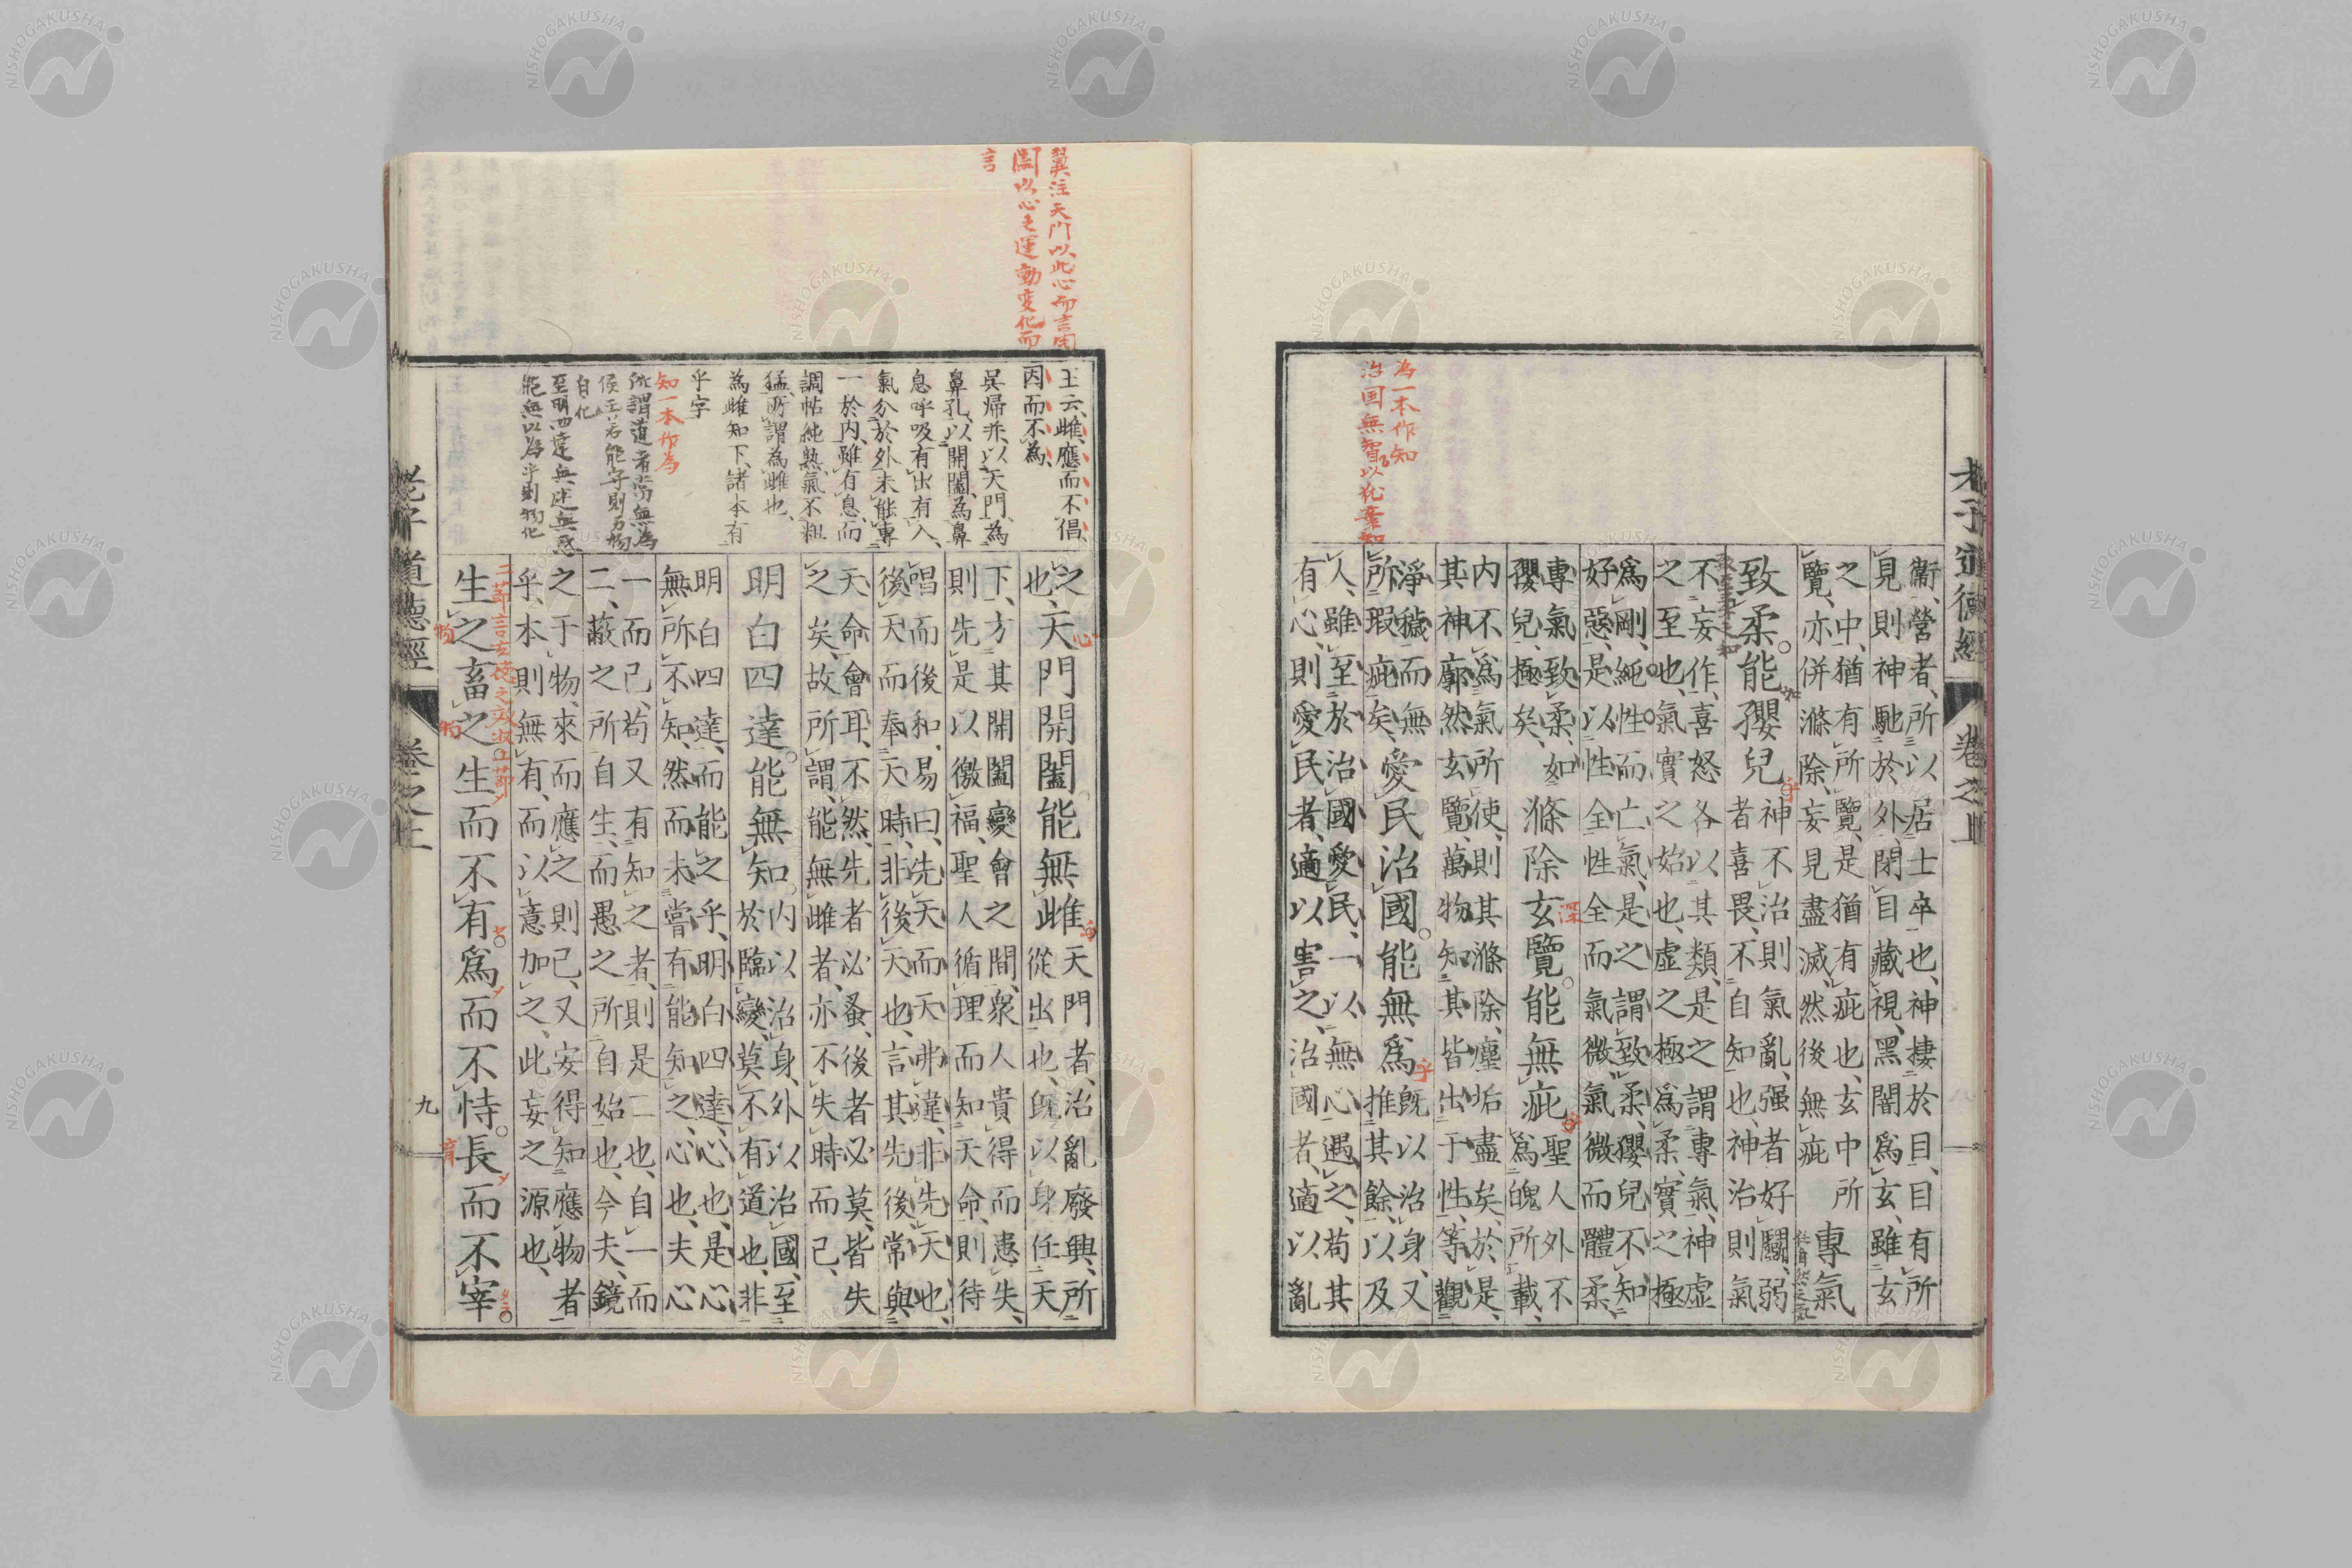 老子道德經 卷之上
為一本作知
衞、營者、所以居士卒也、神棲於目、目有所
見則神馳於外、閉目藏視、黑闇爲玄、雖玄
之中、猶有所覽、是猶有疵也、玄中所
覽、亦併滌除、妄見盡滅、然後無疵
專氣
致柔。能孾兒
神不治則氣亂、强者好鬭、弱
者喜畏、不自知也、神治則氣
不妄作、喜怒各以其類、是之謂專氣、神虛
之至也、氣實之始也、虛之極爲柔、實之極
爲剛、純性而亡氣、是之謂致柔、孾兒不知
好惡、是以性全、性全而氣微、氣微而體柔
專氣致柔、如
孾兒極矣、
滌除玄覽。能無疵
聖人外不
爲魄所載、
內不爲氣所使、則其滌除塵垢盡矣、於是、
其神廓然玄覽、萬物知其皆出于性、等觀
淨穢、而無
所瑕疵矣、
愛民治國。能無爲
乎
旣以治身、又
推其餘、以及
人、雖至於治國愛民、一以無心遇之、苟其
有心、則愛民者、適以害之、治國者、適以亂
翼注天門以此心而言開
闔以心之運動変化而
言
王云、雌、應而不倡、
因而不為、
吳帰并、以天門、為
鼻孔、以開闔、為鼻
息呼吸有出有入、
氣分於外、未能專
一於内、雖有息、而
調帖純熟、氣不粗
猛、所謂為雌也、
為雌知下、諸本有
乎字
知一本作為
所謂道者常無為
侯王若能守則万物
自化
至明四達無迷無惑
能無以為乎則物化
之
也、
天門開闔。能無雌
天門者、治亂廢興、所
從出也、旣以身任天
下、方其開闔變會之間、衆人貴得而患失、
則先是以徼福、聖人循理而知天命、則待
唱而後和、易曰、先天而天弗違、非先天也、
後天而奉天時、非後天也、言其先後常與
天命會耳、不然、先者必蚤、後者必莫、皆失
之矣、故所謂能無雌者、亦不失時而已、
明白四達。能無知。
內以治身、外以治國、至
於臨變、莫不有道也、非
明白四達、而能之乎、明白四達、心也、是心
無所不知、然而未嘗有能知之心也、夫心
一而已、苟又有知之者、則是二也、自一而
二、蔽之所自生、而愚之所自始也、今夫、鏡
之于物、來而應之則已、又安得知應物者
乎、本則無有、而以意加之、此妄之源也、
生之畜之生而不有。爲而不恃。長而不宰。
老子道德經 卷之上 九
NISHOGAKUSHA